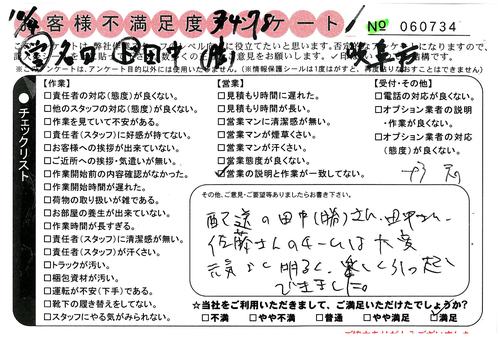 お客様不満足度アンケート
№ 060734
チェックリスト
【作業】
□責任者の対応(態度)が良くない。
□他のスタッフの対応(態度)が良くない。
□作業を見ていて不安がある。
□責任者(スタッフ)に好感が持てない。
□お客様への挨拶が出来ていない。
□ご近所への挨拶・気遣いが無い。
□作業開始前の内容確認がなかった。
□作業開始時間が遅れた。
□荷物の取り扱いが雑である。
□お部屋の養生が出来ていない。
□作業時間が長すぎる。
□責任者(スタッフ)に清潔感が無い。
□責任者(スタッフ)が汗くさい。
□トラックが汚い。
□梱包資材が汚い。
□運転が不安(下手)である。
□靴下の履き替えをしてない。
□スタッフにやる気がみられない。
【営業】
□見積もり時間に遅れた。
□見積もり時間が長い。
□営業マンに清潔感が無い。
□営業マンが煙草くさい。
□営業マンが汗くさい。
□営業態度が良くない。
□営業の説明と作業が一致してない。
【受付・その他】
□電話の対応が良くない。
□オプション業者の説明
・作業が良くない。
□オプション業者の対応
(態度)が良くない。
その他、ご意見・ご要望等ありましたらお書き下さい。
配送の田中(勝)さん、田中さん、
佐藤さんのチームは大変
元気で明るく、楽しく引っ越し
できました。
☆当社をご利用いただきまして、ご満足いただけたでしょうか?
□不満 □やや不満 □普通 □やや満足 □満足